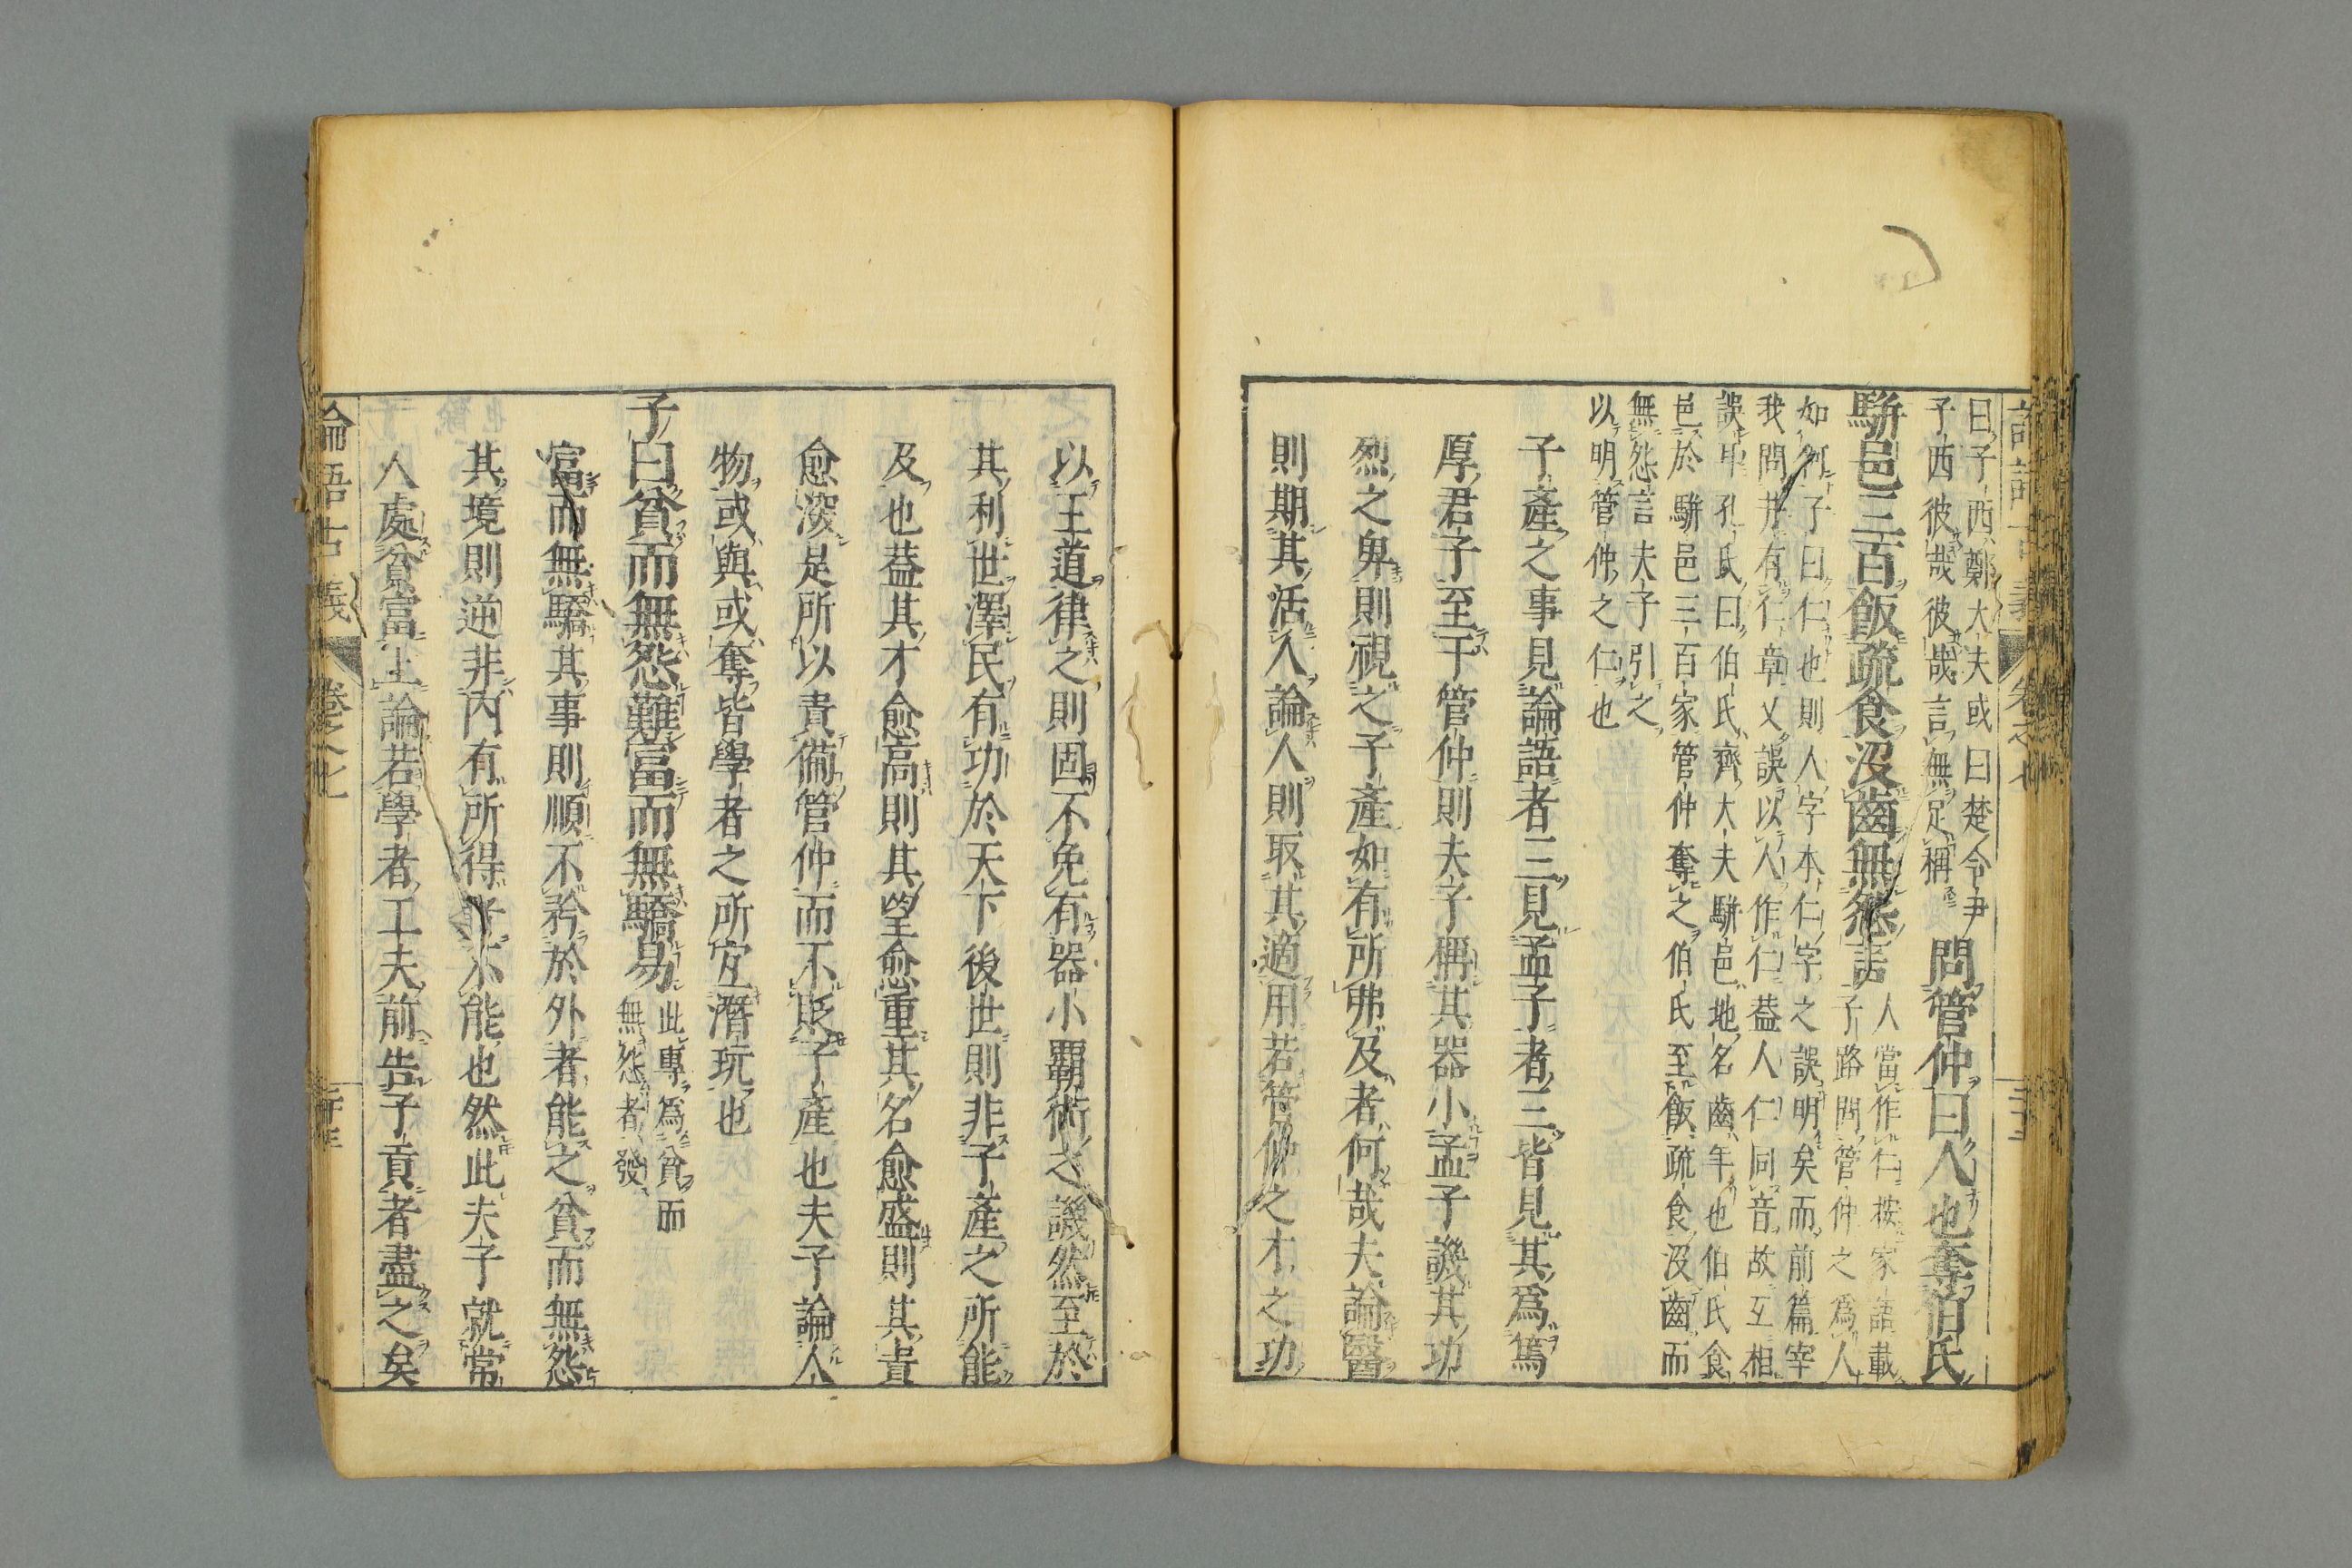 曰子西鄭大夫或曰楚令尹
子西彼哉彼哉言無足稱
問管仲曰人也奪伯氏
駢邑三百飯疏食沒齒無怨言
人當作仁按家語載
子路問管仲之爲人
如何子曰仁也則人字本仁字之誤明矣而前篇宰
我問井有仁章又誤以人作仁蓋人仁同音故互相
誤耳孔氏曰伯氏齊大夫駢邑地名齒年也伯氏食
邑於駢邑三百家管仲奪之伯氏至飯疏食沒齒而
無怨言夫子引之
以明管仲之仁也
子產之事見論語者三見孟子者三皆見其爲篤
厚君子至于管仲則夫子稱其器小孟子譏其功
烈之卑則視之子產如有所弗及者何哉夫論醫
則期其活人論人則取其適用若管仲之才之功
以王道律之則固不免有器小霸術之譏然至於
其利世澤民有功於天下後世則非子產之所能
及也蓋其才愈高則其望愈重其名愈盛則其責
愈深是所以責備管仲而不貶子產也夫子論人
物或與或奪皆學者之所宜潛玩也
子曰貧而無怨難富而無驕易
此專爲貧而
無怨者發
富而無驕其事則順不矜於外者能之貧而無怨
其境則逆非內有所得者不能也然此夫子就常
人處貧富上論若學者工夫前告子貢者盡之矣
論語古義
卷之七